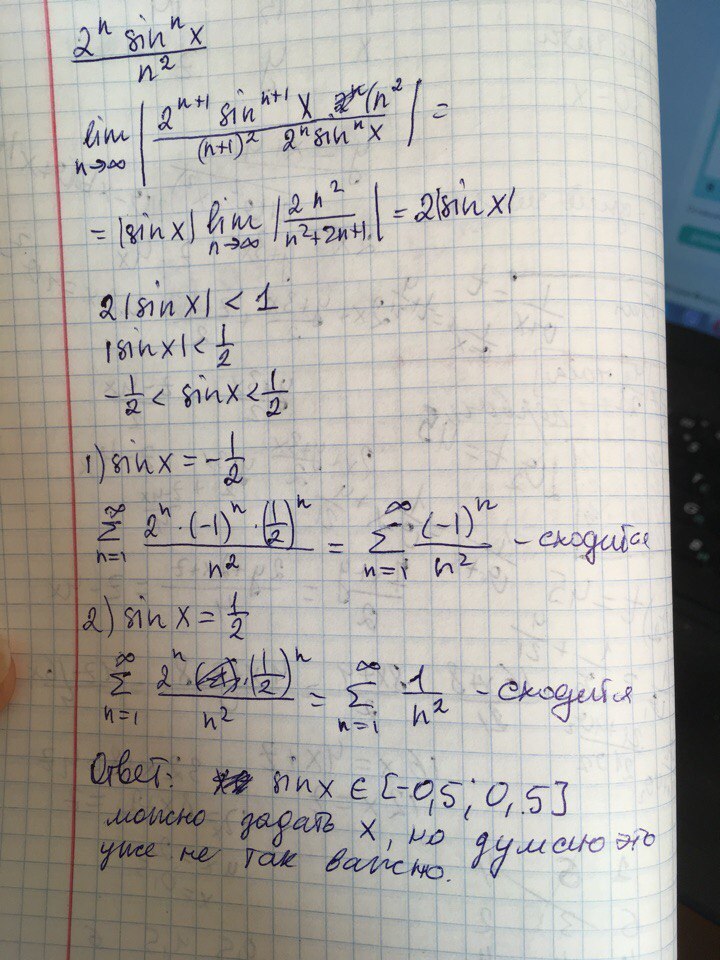 2ⁿ sinⁿx / n²
lim n→∞ | 2ⁿ⁺¹ sinⁿ⁺¹ X (n² / (n+1)² 2ⁿ sinⁿ X | =
= |sin x| lim n→∞ | 2n² / n²+2n+1 | = 2|sin x|
2|sin x| < 1
|sin x| < 1/2
-1/2 < sin x < 1/2
1) sin x = -1/2
∑ n=1 ∞ 2ⁿ · (-1)ⁿ · (1/2)ⁿ / n² = ∑ n=1 ∞ (-1)ⁿ / n² - сходится
2) sin x = 1/2
∑ n=1 ∞ 2ⁿ · (1/2)ⁿ / n² = ∑ n=1 ∞ 1 / n² - сходится
Ответ: sin x ∈ [-0,5; 0,5]
можно задать x, но думаю это
уже не так важно.